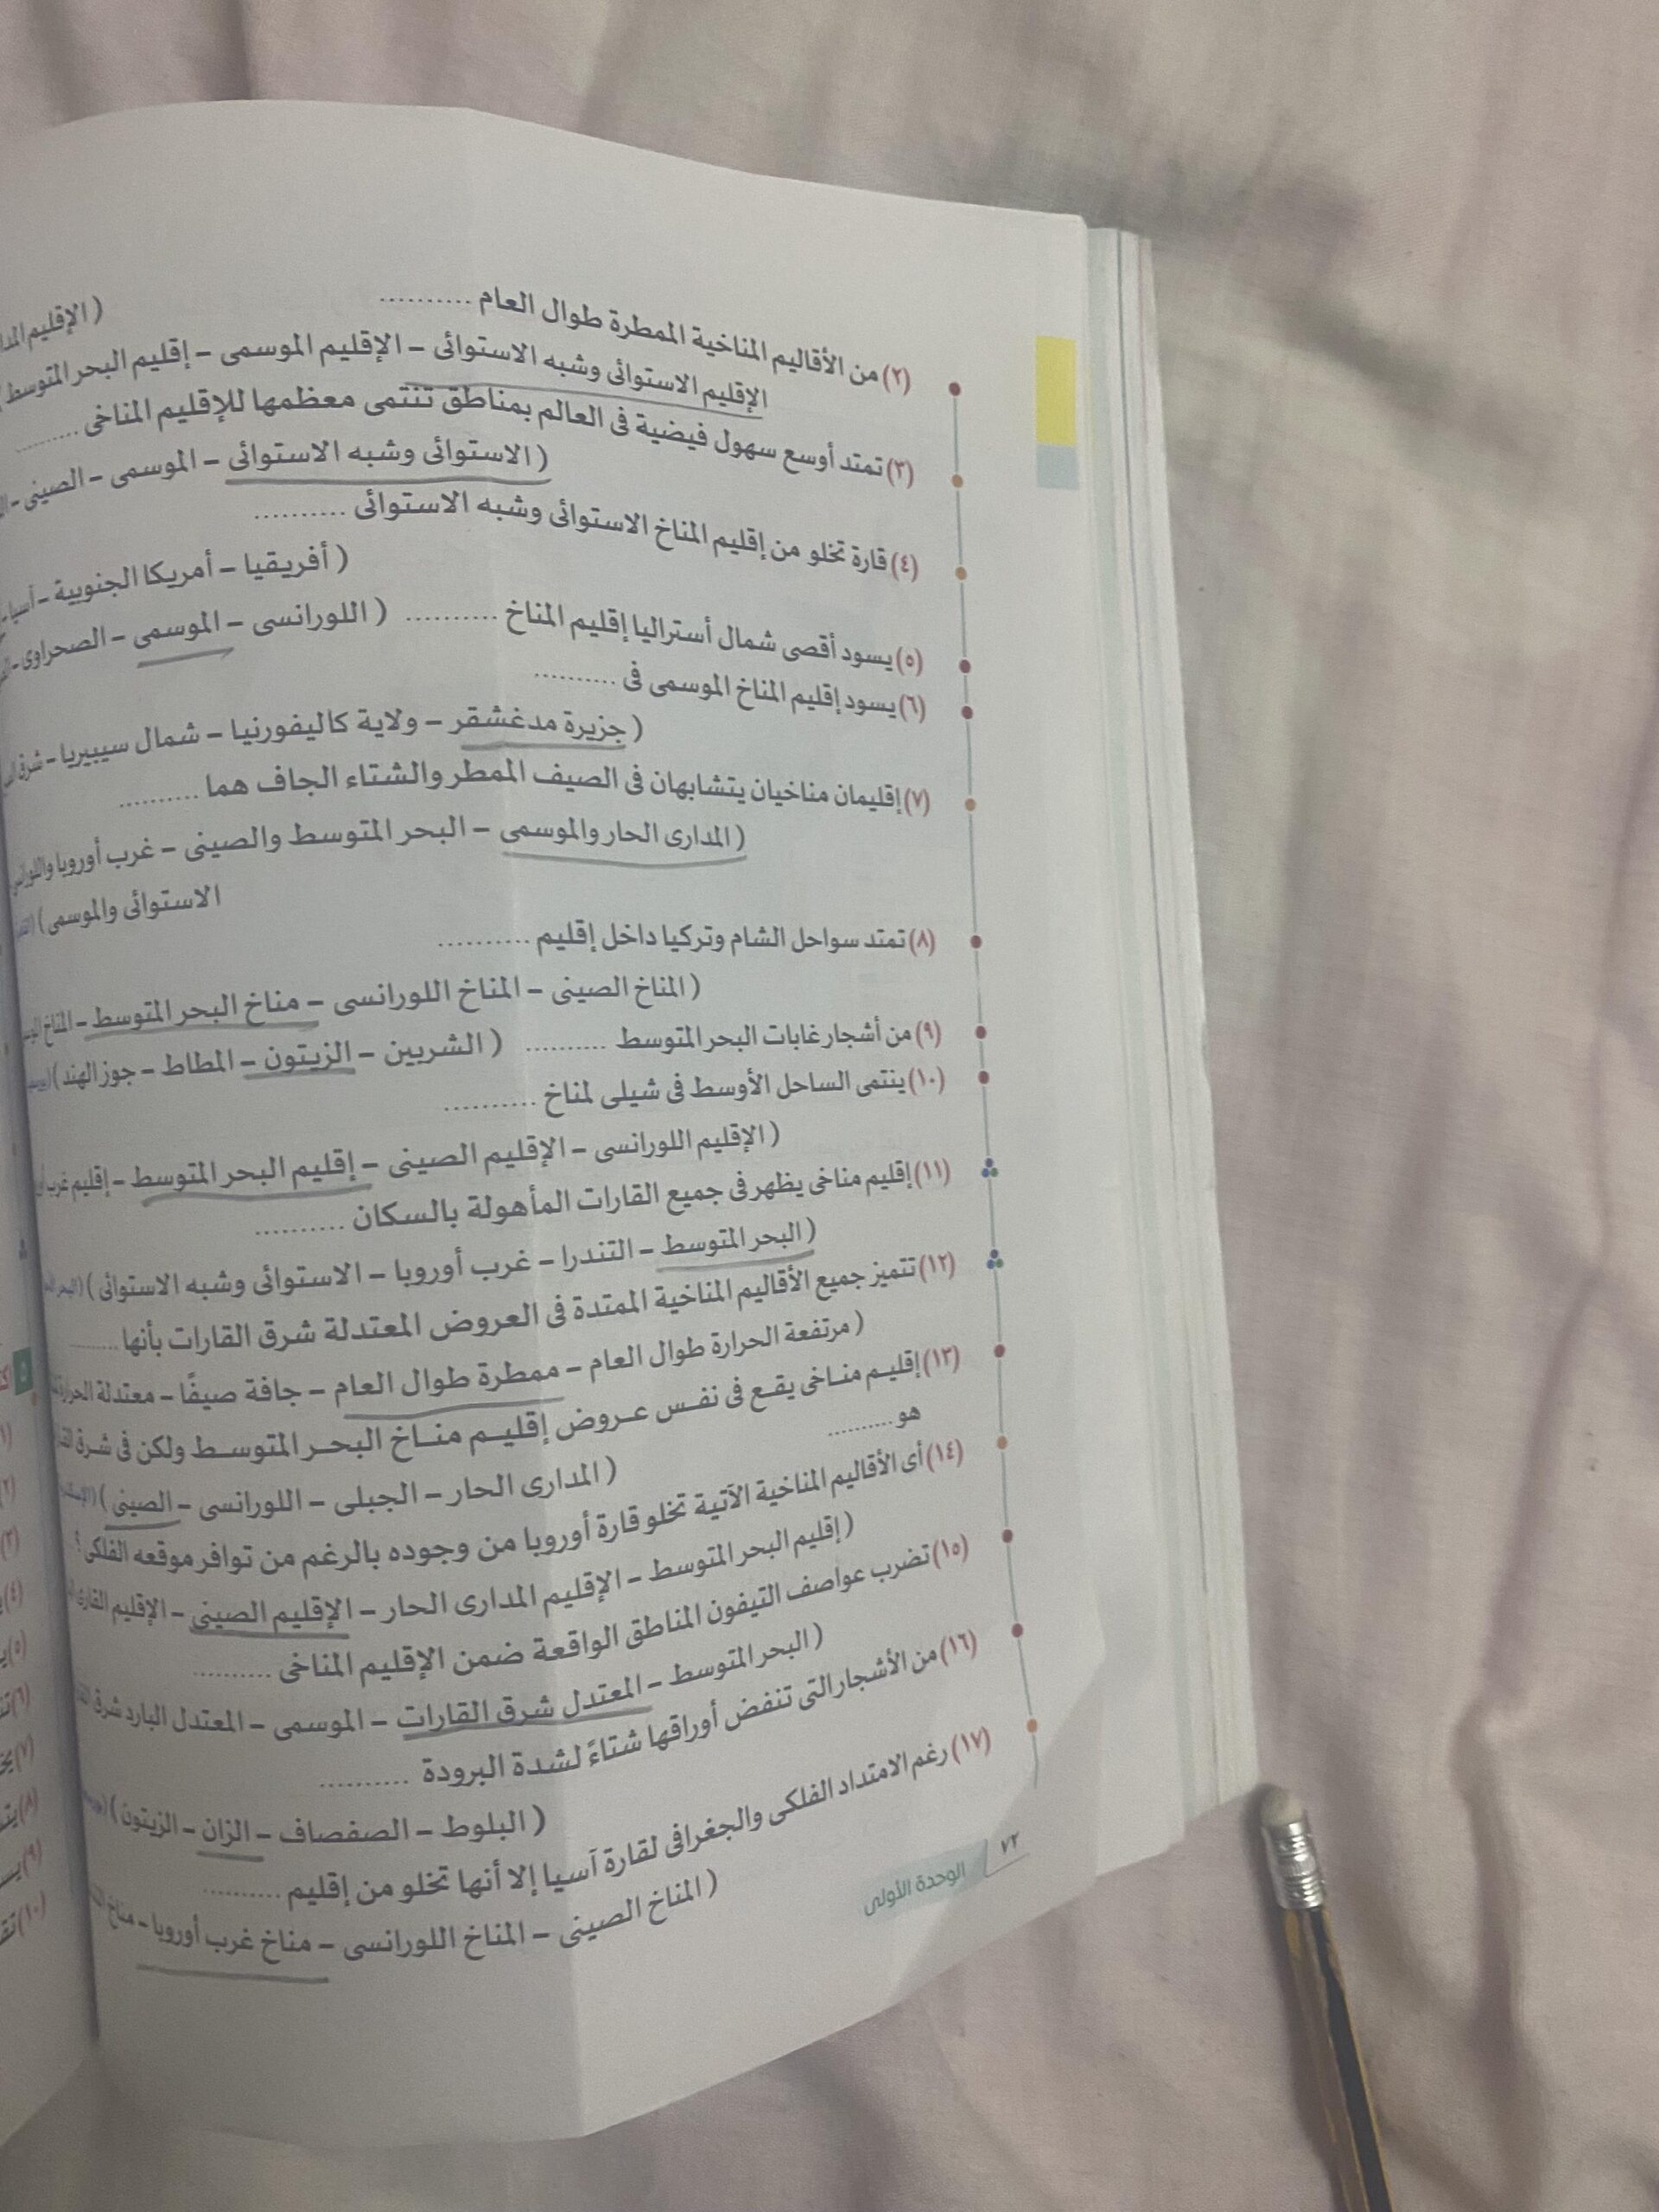 (٢) من الأقاليم المناخية الممطرة طوال العام ..........
( الإقليم
الإقليم الاستوائى وشبه الاستوائى – الإقليم الموسمى – إقليم البحر المتوسط
(٣) تمتد أوسع سهول فيضية فى العالم بمناطق تنتمى معظمها للإقليم المناخى ..........
( الاستوائى وشبه الاستوائى – الموسمى – الصينى –
(٤) قارة تخلو من إقليم المناخ الاستوائى وشبه الاستوائى ..........
( أفريقيا – أمريكا الجنوبية – آسيا –
(٥) يسود أقصى شمال أستراليا إقليم المناخ .......... ( اللورانسى – الموسمى – الصحراوى –
(٦) يسود إقليم المناخ الموسمى فى ..........
( جزيرة مدغشقر – ولاية كاليفورنيا – شمال سيبيريا – شرق
(٧) إقليمان مناخيان يتشابهان فى الصيف الممطر والشتاء الجاف هما ..........
( المدارى الحار والموسمى – البحر المتوسط والصينى – غرب أوروبا
الاستوائى والموسمى )
(٨) تمتد سواحل الشام وتركيا داخل إقليم ..........
( المناخ الصينى – المناخ اللورانسى – مناخ البحر المتوسط – المناخ
(٩) من أشجار غابات البحر المتوسط .......... ( الشربين – الزيتون – المطاط – جوز الهند )
(١٠) ينتمى الساحل الأوسط فى شيلى لمناخ ..........
( الإقليم اللورانسى – الإقليم الصينى – إقليم البحر المتوسط – إقليم غرب
(١١) إقليم مناخى يظهر فى جميع القارات المأهولة بالسكان ..........
( البحر المتوسط – التندرا – غرب أوروبا – الاستوائى وشبه الاستوائى )
(١٢) تتميز جميع الأقاليم المناخية الممتدة فى العروض المعتدلة شرق القارات بأنها ..........
( مرتفعة الحرارة طوال العام – ممطرة طوال العام – جافة صيفًا – معتدلة الحرارة
(١٣) إقليم مناخى يقع فى نفس عروض إقليم مناخ البحر المتوسط ولكن فى شرق
هو ..........
( المدارى الحار – الجبلى – اللورانسى – الصينى )
(١٤) أى الأقاليم المناخية الآتية تخلو قارة أوروبا من وجوده بالرغم من توافر موقعه الفلكى ؟
( إقليم البحر المتوسط – الإقليم المدارى الحار – الإقليم الصينى – الإقليم
(١٥) تضرب عواصف التيفون المناطق الواقعة ضمن الإقليم المناخى ..........
( البحر المتوسط – المعتدل شرق القارات – الموسمى – المعتدل البارد شرق
(١٦) من الأشجار التى تنفض أوراقها شتاءً لشدة البرودة ..........
( البلوط – الصفصاف – الزان – الزيتون )
(١٧) رغم الامتداد الفلكى والجغرافى لقارة آسيا إلا أنها تخلو من إقليم ..........
( المناخ الصينى – المناخ اللورانسى – مناخ غرب أوروبا – مناخ
٧٢ الوحدة الأولى